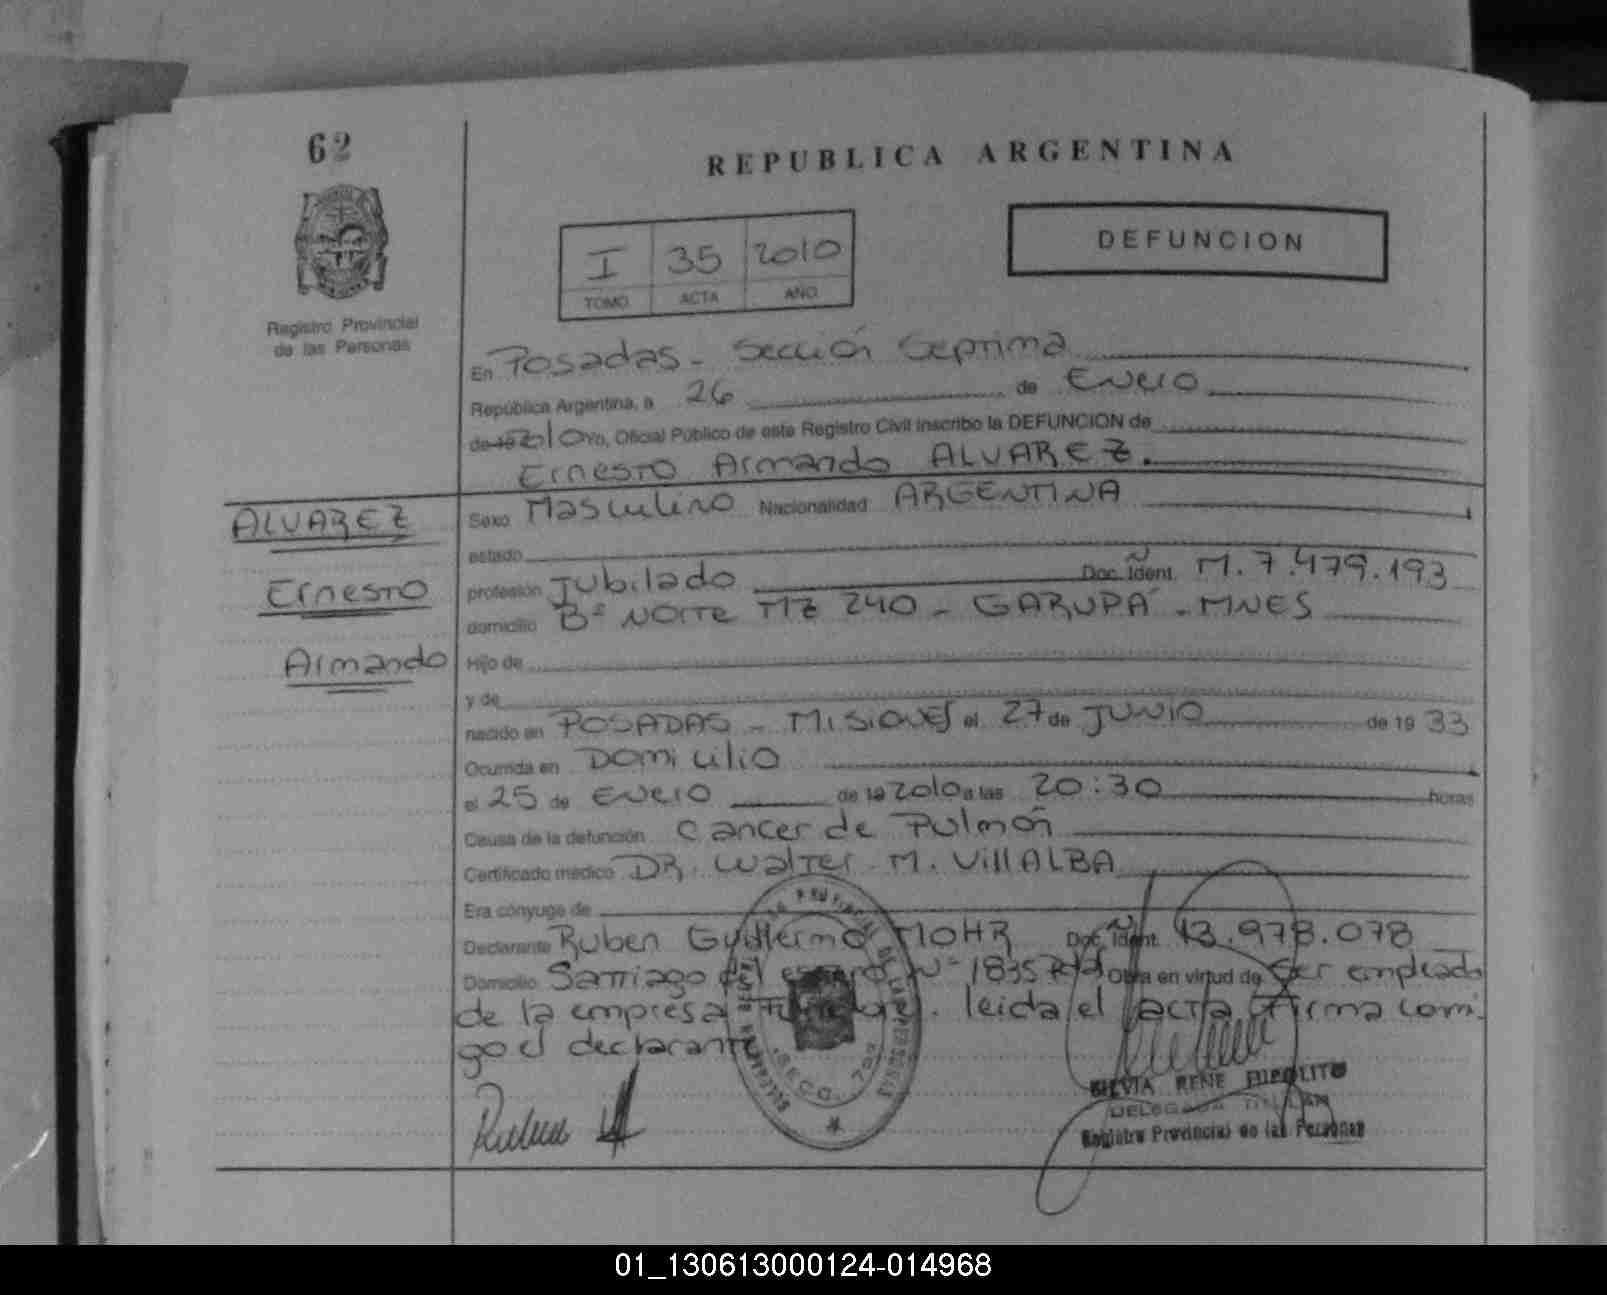 62
REPUBLICA ARGENTINA
Registro Provincial
de las Personas
I 35 2010
TOMO ACTA AÑO
DEFUNCION
En Posadas - Sección Septima
República Argentina, a 26 de Enero
de 19 2010 Yo, Oficial Público de este Registro Civil inscribo la DEFUNCION de
Ernesto Armando ALVAREZ.
ALVAREZ
Ernesto
Armando
Sexo Masculino Nacionalidad ARGENTINA
estado
profesión Jubilado Doc. Ident. M. 7.479.193
domicilio Bº NOrTe MZ 240 - GARUPÁ - MNES
Hijo de
y de
nacido en POSADAS - MISIONES el 27 de JUNIO de 19 33
Ocurrida en Domicilio
el 25 de Enero de 19 2010 a las 20:30 horas
Causa de la defunción Cancer de Pulmón
Certificado médico DR. Walter M. VillALBA
Era cónyuge de
Declarante Ruben Guillermo MOHR Doc. Ident. 13.978.078
Domicilio Santiago del estero Nº 1835 Obra en virtud de Ser empleado
de la empresa leida el acta Firma comi
go el declarante
REGISTRO PROVINCIAL DE LAS PERSONAS
SECC. 7ma
SILVIA RENE HIPOLITO
DELEGADA TITULAR
Registro Provincial de las Personas
01_130613000124-014968